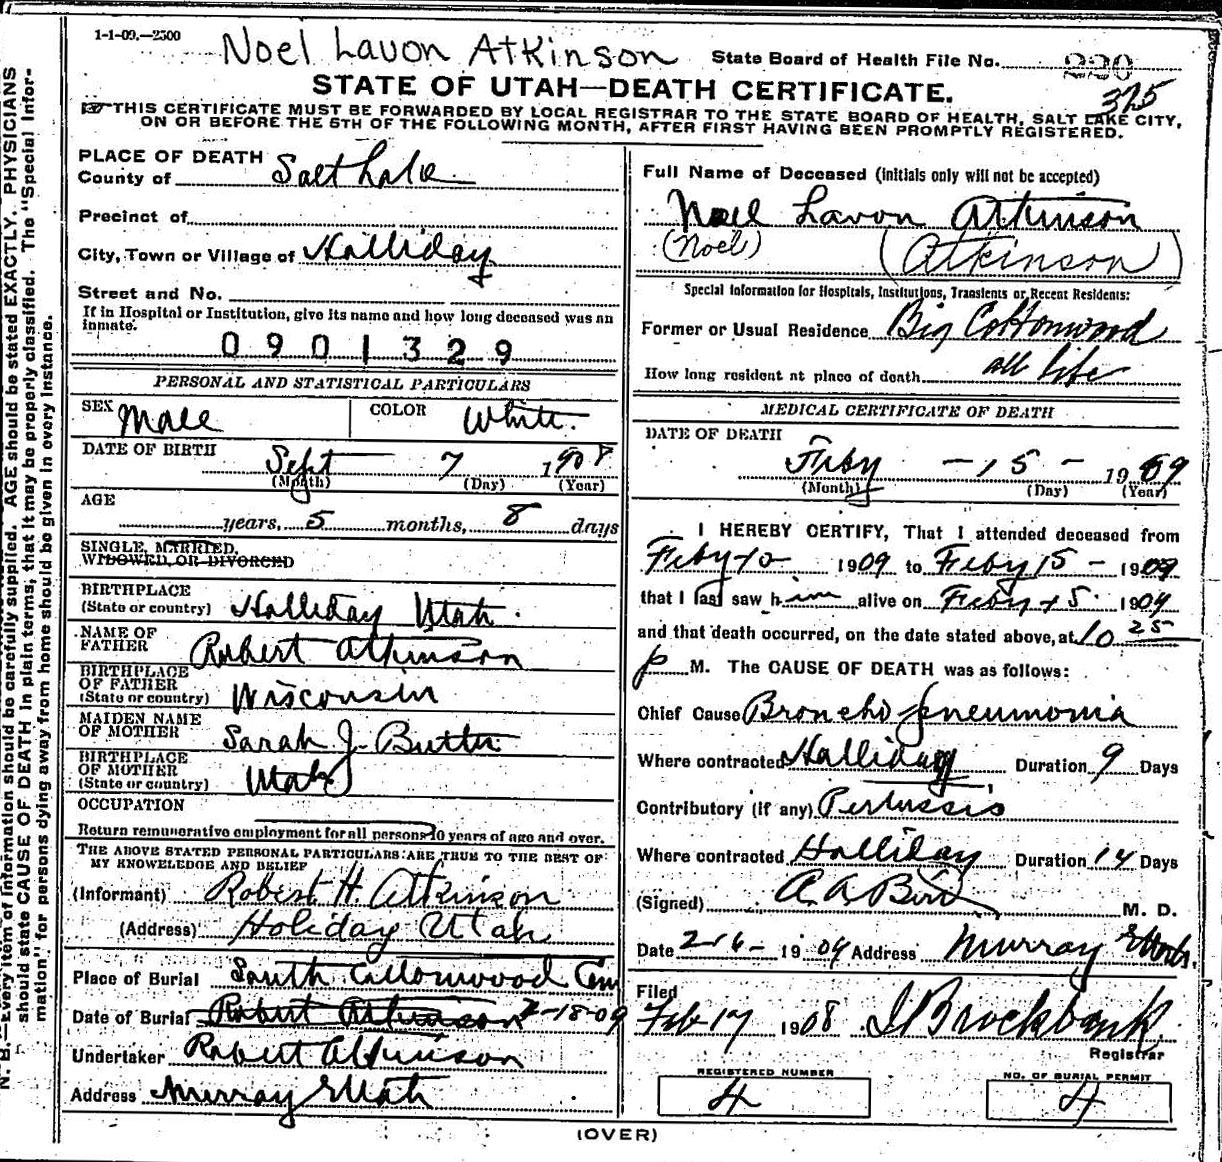 1-1-09.—2500
Noel Lavon Atkinson
State Board of Health File No. 220
375
STATE OF UTAH—DEATH CERTIFICATE.
THIS CERTIFICATE MUST BE FORWARDED BY LOCAL REGISTRAR TO THE STATE BOARD OF HEALTH, SALT LAKE CITY,
ON OR BEFORE THE 5TH OF THE FOLLOWING MONTH, AFTER FIRST HAVING BEEN PROMPTLY REGISTERED.
N. B.—Every item of information should be carefully supplied. AGE should be stated EXACTLY. PHYSICIANS
should state CAUSE OF DEATH in plain terms, that it may be properly classified. The "Special Infor-
mation" for persons dying away from home should be given in every instance.
PLACE OF DEATH
County of Salt Lake
Precinct of
City, Town or Village of Halliday
Street and No.
If in Hospital or Institution, give its name and how long deceased was an
inmate.
0901329
PERSONAL AND STATISTICAL PARTICULARS
SEX Male COLOR White.
DATE OF BIRTH
Sept 7 1908
(Month) (Day) (Year)
AGE
years, 5 months, 8 days
SINGLE, MARRIED,
WIDOWED, OR DIVORCED
BIRTHPLACE
(State or country) Halliday Utah.
NAME OF
FATHER Robert Atkinson
BIRTHPLACE
OF FATHER
(State or country) Wisconsin
MAIDEN NAME
OF MOTHER Sarah J. Butler
BIRTHPLACE
OF MOTHER
(State or country) Utah
OCCUPATION
Return remunerative employment for all persons 10 years of age and over.
THE ABOVE STATED PERSONAL PARTICULARS ARE TRUE TO THE BEST OF
MY KNOWLEDGE AND BELIEF
(Informant) Robert H. Atkinson
(Address) Holiday Utah
Place of Burial South Cottonwood Cem
Date of Burial Robert Atkinson 2-18-09
Undertaker Robert Atkinson
Address Murray Utah
Full Name of Deceased (Initials only will not be accepted)
Noel Lavon Atkinson
(Noel) (Atkinson)
Special Information for Hospitals, Institutions, Transients or Recent Residents:
Former or Usual Residence Big Cottonwood
How long resident at place of death all life
MEDICAL CERTIFICATE OF DEATH
DATE OF DEATH
Feby -15- 1909
(Month) (Day) (Year)
I HEREBY CERTIFY, That I attended deceased from
Feby 10 1909 to Feby 15 - 1909
that I last saw him alive on Feby 15. 1909
and that death occurred, on the date stated above, at 10 25
p M. The CAUSE OF DEATH was as follows:
Chief Cause Broncho pneumonia
Where contracted Halliday Duration 9 Days
Contributory (if any) Pertussis
Where contracted Halliday Duration 14 Days
(Signed) A. A. Bird M. D.
Date 2-16- 1909 Address Murray Utah.
Filed
Feb 17 1908 J Brockbank
Registrar
REGISTERED NUMBER
4
NO. OF BURIAL PERMIT
4
(OVER)